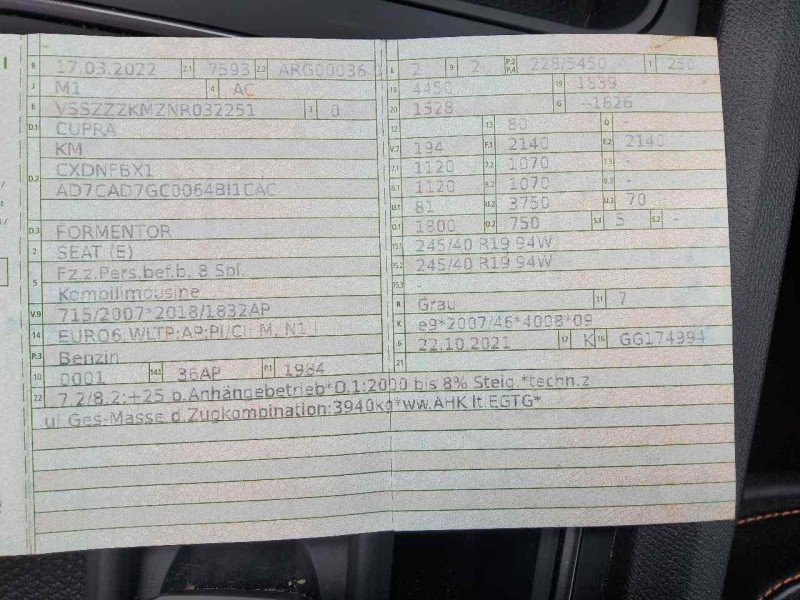 B 17.03.2022 2.1 7593 2.2 ARG00036
J M1 4 AC
E VSSZZZKMZNR032251 3 0
D.1 CUPRA
KM
D.2 CXDNFBX1
AD7CAD7GC0064BI1CAC
D.3 FORMENTOR
2 SEAT (E)
5 Fz.z.Pers.bef.b. 8 Spl.
Kombilimousine
V.9 715/2007*2018/1832AP
14 EURO6;WLTP;AP;PI/CI; M, N1 I
P.3 Benzin
10 0001 14.1 36AP P.1 1984
L 2 9 2 P.2 P.4 228/5450 T 250
18 4450 19 1839
20 1528 G --1626
12 - 13 80 Q -
V.7 194 F.1 2140 F.2 2140
7.1 1120 7.2 1070 7.3 -
8.1 1120 8.2 1070 8.3 -
U.1 81 U.2 3750 U.3 70
O.1 1800 O.2 750 S.1 5 S.2 -
15.1 245/40 R19 94W
15.2 245/40 R19 94W
15.3 -
R Grau 11 7
K e9*2007/46*4008*09
6 22.10.2021 17 K 16 GG174994
21
22 7.2/8.2:+25 b.Anhängebetrieb*O.1:2000 bis 8% Steig.*techn.z
ul.Ges-Masse d.Zugkombination:3940kg*ww.AHK lt.EGTG*